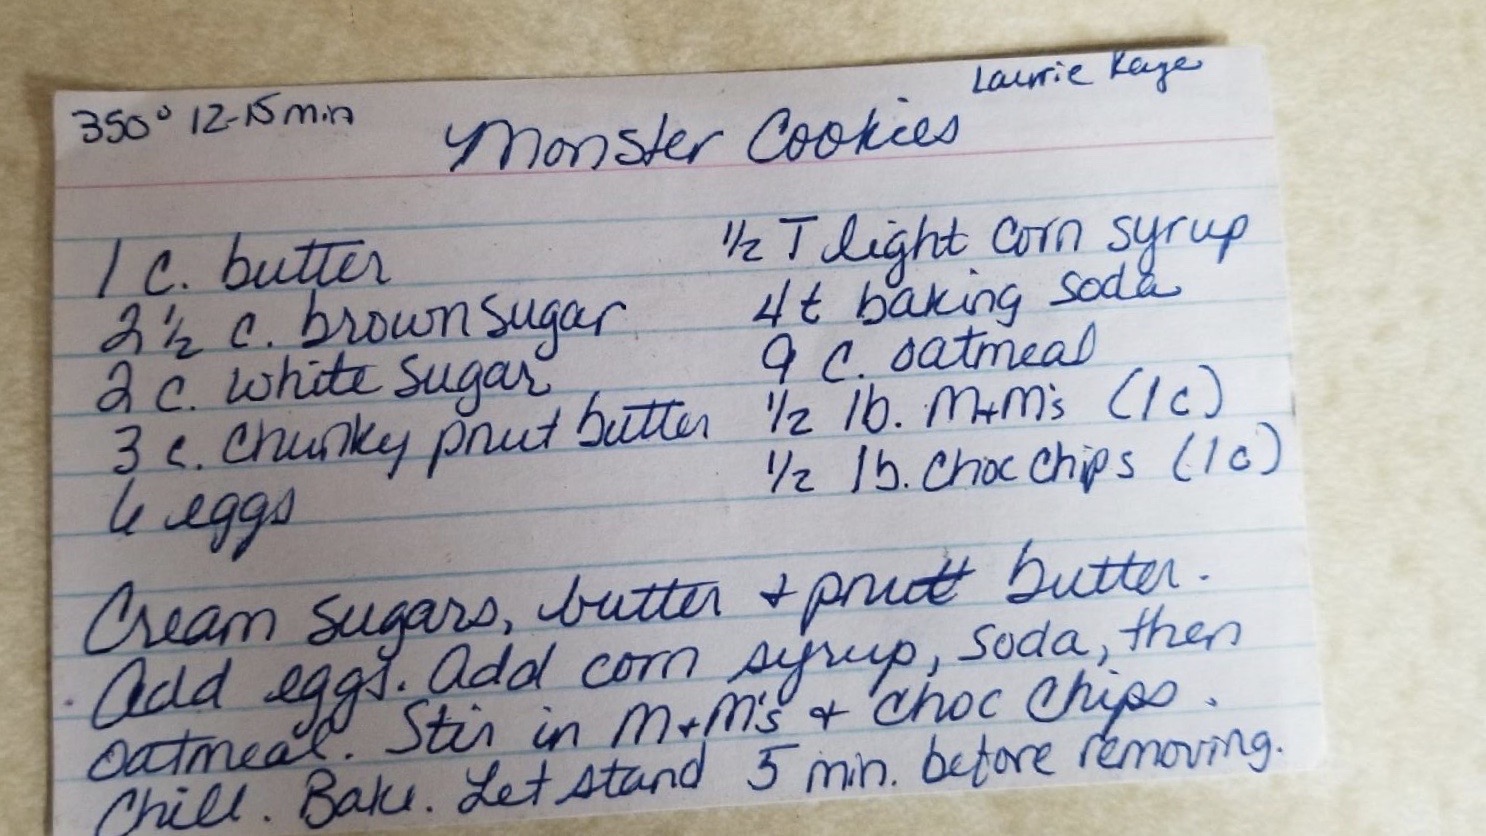 Laurie Kaye
350° 12-15 min
Monster Cookies
1 c. butter
2 1/2 c. brown sugar
2 c. white sugar
3 c. chunky pnut butter
6 eggs
1/2 T light corn syrup
4 t baking soda
9 c. oatmeal
1/2 lb. M+M's (1c)
1/2 lb. choc chips (1c)
Cream sugars, butter + pnutt butter.
Add eggs. Add corn syrup, soda, then
oatmeal. Stir in M+M's + choc chips.
Chill. Bake. Let stand 5 min. before removing.